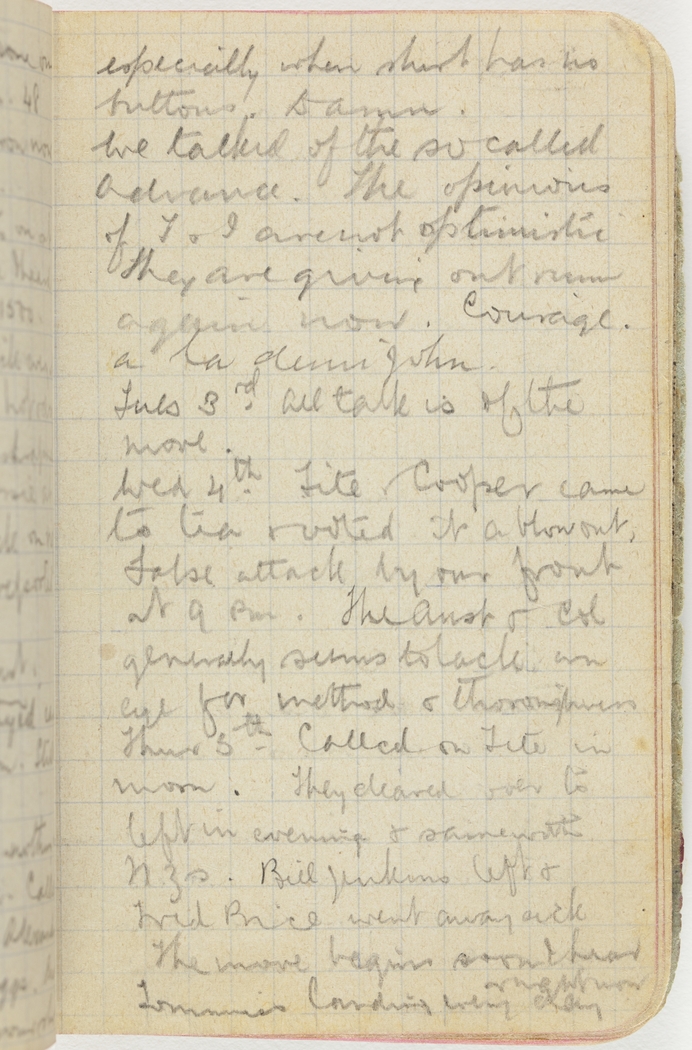 especially when shirt has no
buttons. Damn.
We talked of the so called
advance. The opinions
of T & I are not optimistic
They are giving out rum
again now. Courage.
a la demi john.
Tues 3rd All talk is of the
move.
Wed 4th. Tite Cooper came
to tea & voted it a blow out.
False attack by our front
at 9 pm. The Aust & Col
generally seems to lack an
eye for method & thoroughness
Thur 5th Called on Tite in
morn. They cleared over to
left in evening & same with
N Zs. Bill Jenkins left &
Fred Price went away sick
The move begins soon I hear
or right now
Tommies landing every day